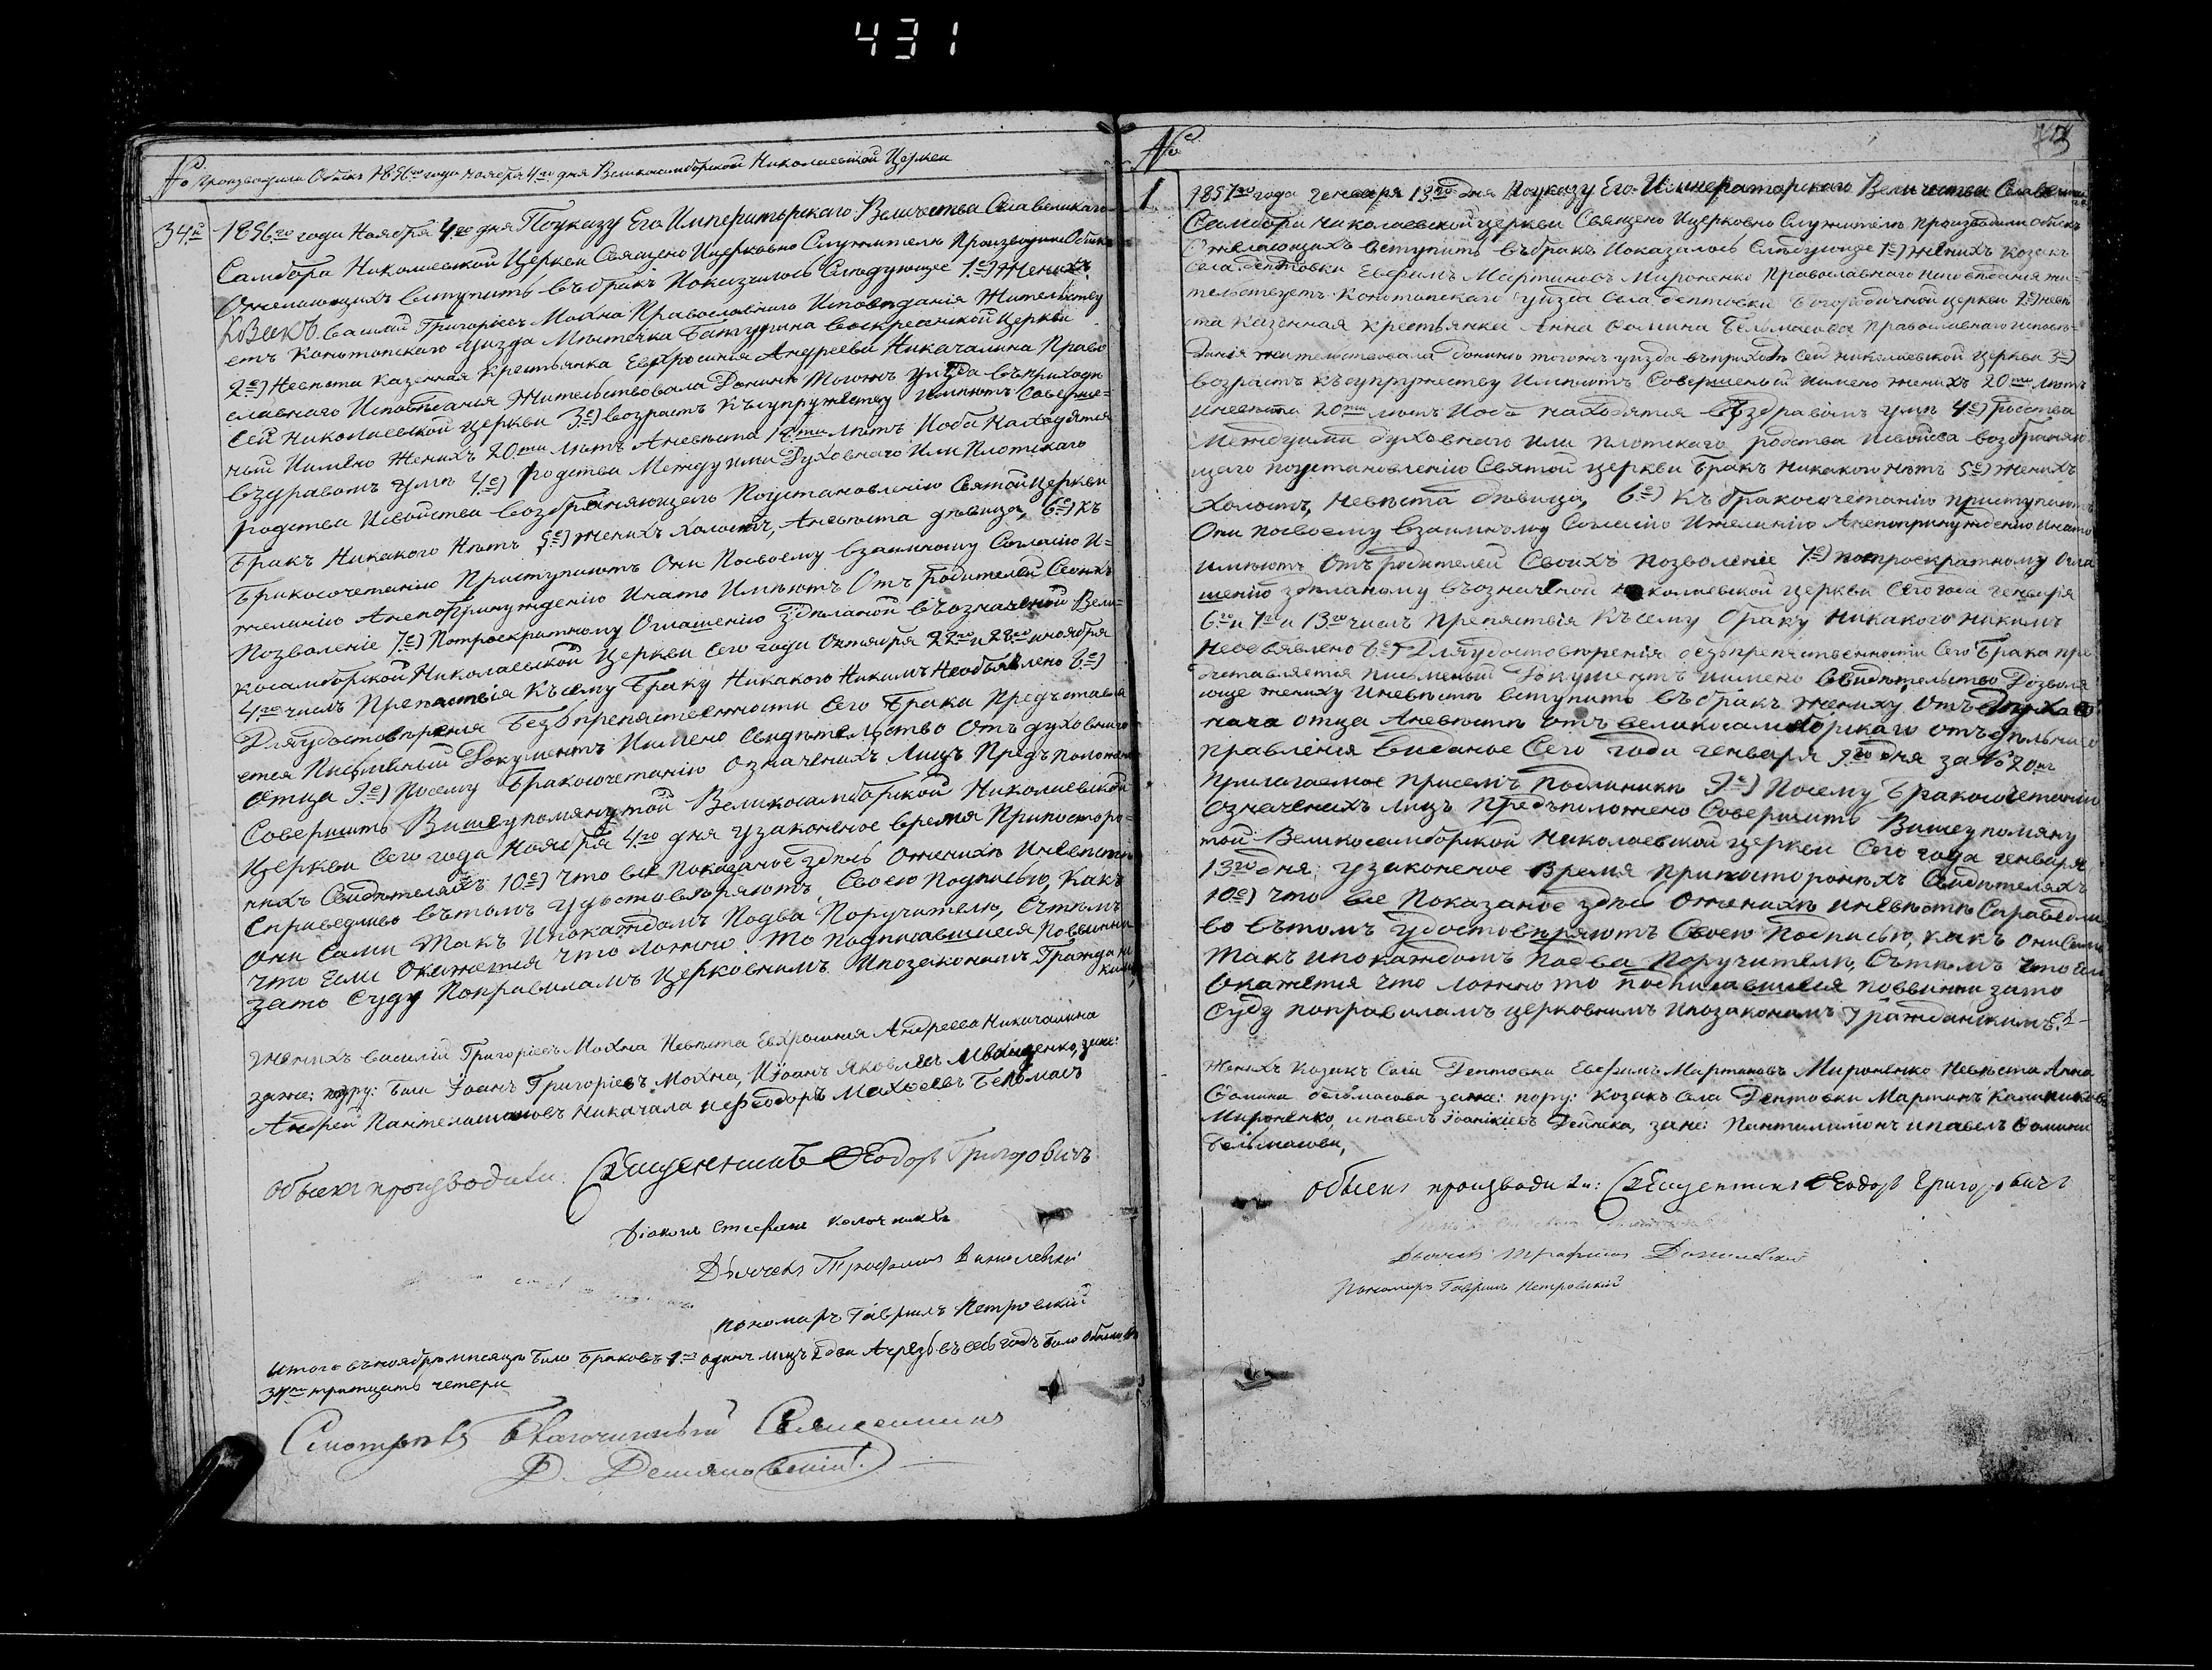 431
№ Производили Обыскъ 1856го года ноября 4го дня Великосамборской Николаевской Церкви
34й 1856го года Ноября 4го дня Поуказу Его Императорскаго Величества Села великаго
Самбора Николаевской Церкви Священо Ицерковно Служители Производили Обыскъ
Ожелающихъ вступить въбракъ Показалось Следующее 1е) Женихъ
козакъ василий Григориевъ Махна Православнаго Исповеданія Жительству
етъ Конотопскаго уизда Мпстечка Батурина Воскресенской Церкви
2е) Невпста Казенная Крестьянка Евхросинія Андреева Никачалина Право
славнаго Исповпданія Жительствовала Донинп Тогожъ уизда въприходп
Сей Николаевской церкви 3е) возрастъ Късупружеству Импютъ Соверше=
ный Иимено Женихъ 20ти лптъ Аневпста 18ти лптъ Иоба Находятся
вздравомъ умп 4е) родства Между ими Духовнаго Или Плотскаго
родства Исвойства возбраняющего Поустановленію Святой Церкви
Бракъ Никакого Нптъ 5е) Женихъ холостъ, Аневпста дпвица, 6е) Къ
Бракосочетанію Приступаютъ Они Посвоему взаимному Согласію И=
желанію Анепопринужденію Инато Импютъ Отъ родителей Своихъ
Позволеніе 7е) Потроекратному Оглашенію Здпланой въозначеной Вели=
косамборской Николаевской Церкви Сего года Октября 22го и 28го иноября
4го числъ Препятствія Късему Браку Никакого Никимъ Необъявлено 8е)
Дляудостовпренія Безпрепятственности Сего Брака Предъставля
ется Письменый Документъ Иимено Свидптельство Отъ духовнаго
Отца 9е) Посему Бракосочетанію Означеныхъ Лицъ Предъположено
Совершить Вишеупомянутой Великосамборской Николаевской
Церкви Сего года Ноября 4го дня узаконеное время Припосторо=
нихъ Свидптеляхъ 10е) Что всё Показаное здпсь Оженихп Иневпстп
Справедливо вътомъ удостовпряютъ Своею Подписью, Какъ
они Сами Такъ Ипокаждомъ Подва Поручителю, Сътпмъ
что если Окажется что ложно То Подписавшиеся Повинни
зато Суду Поправиламъ Церковнимъ Ипозаконамъ Граждански
кимъ
Женихъ василій Григоріевъ Махна Невпста Евхросинія Андреева Никичалина
заже: пору: были Іоанъ Григоріевъ Махна, Иіоанъ Яковлевъ зане:
Андрей Пантелимоновъ Никачала иФеодоръ Махпевъ Белмасъ
Обыскъ производили: Священникъ Феодоръ Григоровичъ
Діаконъ Стефанъ
Дьячекъ Трофимъ Данилевскій
Пономарь Гавриилъ Петровскій
Итого въноябрпмпсяцп Било Браковъ 1нъ одинъ лицъ 2 два Ачрезъ весь годъ било
34ри тритцать четери
Смотрплъ Благочинный Священникъ
Д.
№
1 1857го года Генваря 13го дня Поуказу Его Императорскаго Величества Села великаго
Самбора Николаевской церкви Священо Ицерковно Служители Производили обыскъ
Ожелающихъ вступить въбракъ Ипоказалось Слпдующее 1е) Женихъ Козакъ
Села Дептовки Евфимъ Мартиновъ Мироненко Православнаго Исповпданія жи=
тельствуетъ Конотопскаго уизда Села дептовки Богородичной церкви 2е) невп
ста Казенная Крестьянка Анна Фомина Белмасова Православнаго исповп=
данія жительствовала донинп тогожъ уизда въприходп Сей Николаевской Церкви 3е)
возрастъ късупружеству Импютъ Совершеной иимено женихъ 20ти лптъ
Иневпста 20ти лптъ Иоба находятся вздравомъ умп 4е) Родства
Междуими духовнаго или плотскаго родства исвойства возбраняю
щаго поустановленію Святой церкви Бракъ никакого нптъ 5е) Женихъ
Холостъ, Невпста дпвица, 6е) Къ бракосочетанію приступаютъ
Они посвоему взаимному Согласію Ижеланію Анепопринужденію Инато
импютъ Отъ родителей Своихъ позволеніе 7е) потроекратному Огла
шенію здпланому възначеной Николаевской церкви Сего года генваря
6го и 7го и 13го числъ препятствія късему браку никакого никимъ
Необъявлено 8е) Дляудостовпренія безпрепятственности Сего Брака пре
дставляется письменый Документъ иимено Свидптельство Дозволя
юще жениху Иневпстп вступить въбракъ жениху отъ духо
наго отца Аневпстп отъ великосамборскаго отъдпльнаго
правленія виданое Сего года генваря 9го дня за № 20мъ
прилагаемое присемъ Подлинникп 9е) Посему Бракосочетанію
Означеныхъ лицъ предъположено Совершить Вишеупомяну
той Великосамборской Николаевской церкви Сего года генваря
13го дня узаконеное время припостороныхъ Свидптеляхъ
10е) что все Показаное здпсь Оженихп иневпстп Справедли
во вътомъ удостовпряютъ Своею Подписью, какъ они Сами
такъ ипокаждомъ подва Поручителю, Сътпмъ что если
Окажется что ложно то подписавшиеся повинни зато
Суду поправиламъ церковнимъ Ипозаконамъ Гражданскимъ.
Женихъ Козакъ Села Дептовки Евфимъ Мартиновъ Мироненко Невпста Анна
Фомина Белмасова заже: пору: козакъ села Дептовки Мартинъ
Мироненко, ипавелъ Іоаникіевъ Дейнека, зане: Пантилимонъ ипавелъ Фомини
Белмасови,
Обыскъ производили: Священникъ Феодоръ Григоровичъ
Дьячекъ Трофимъ Данилевский
Пономарь Гавриилъ Петровский